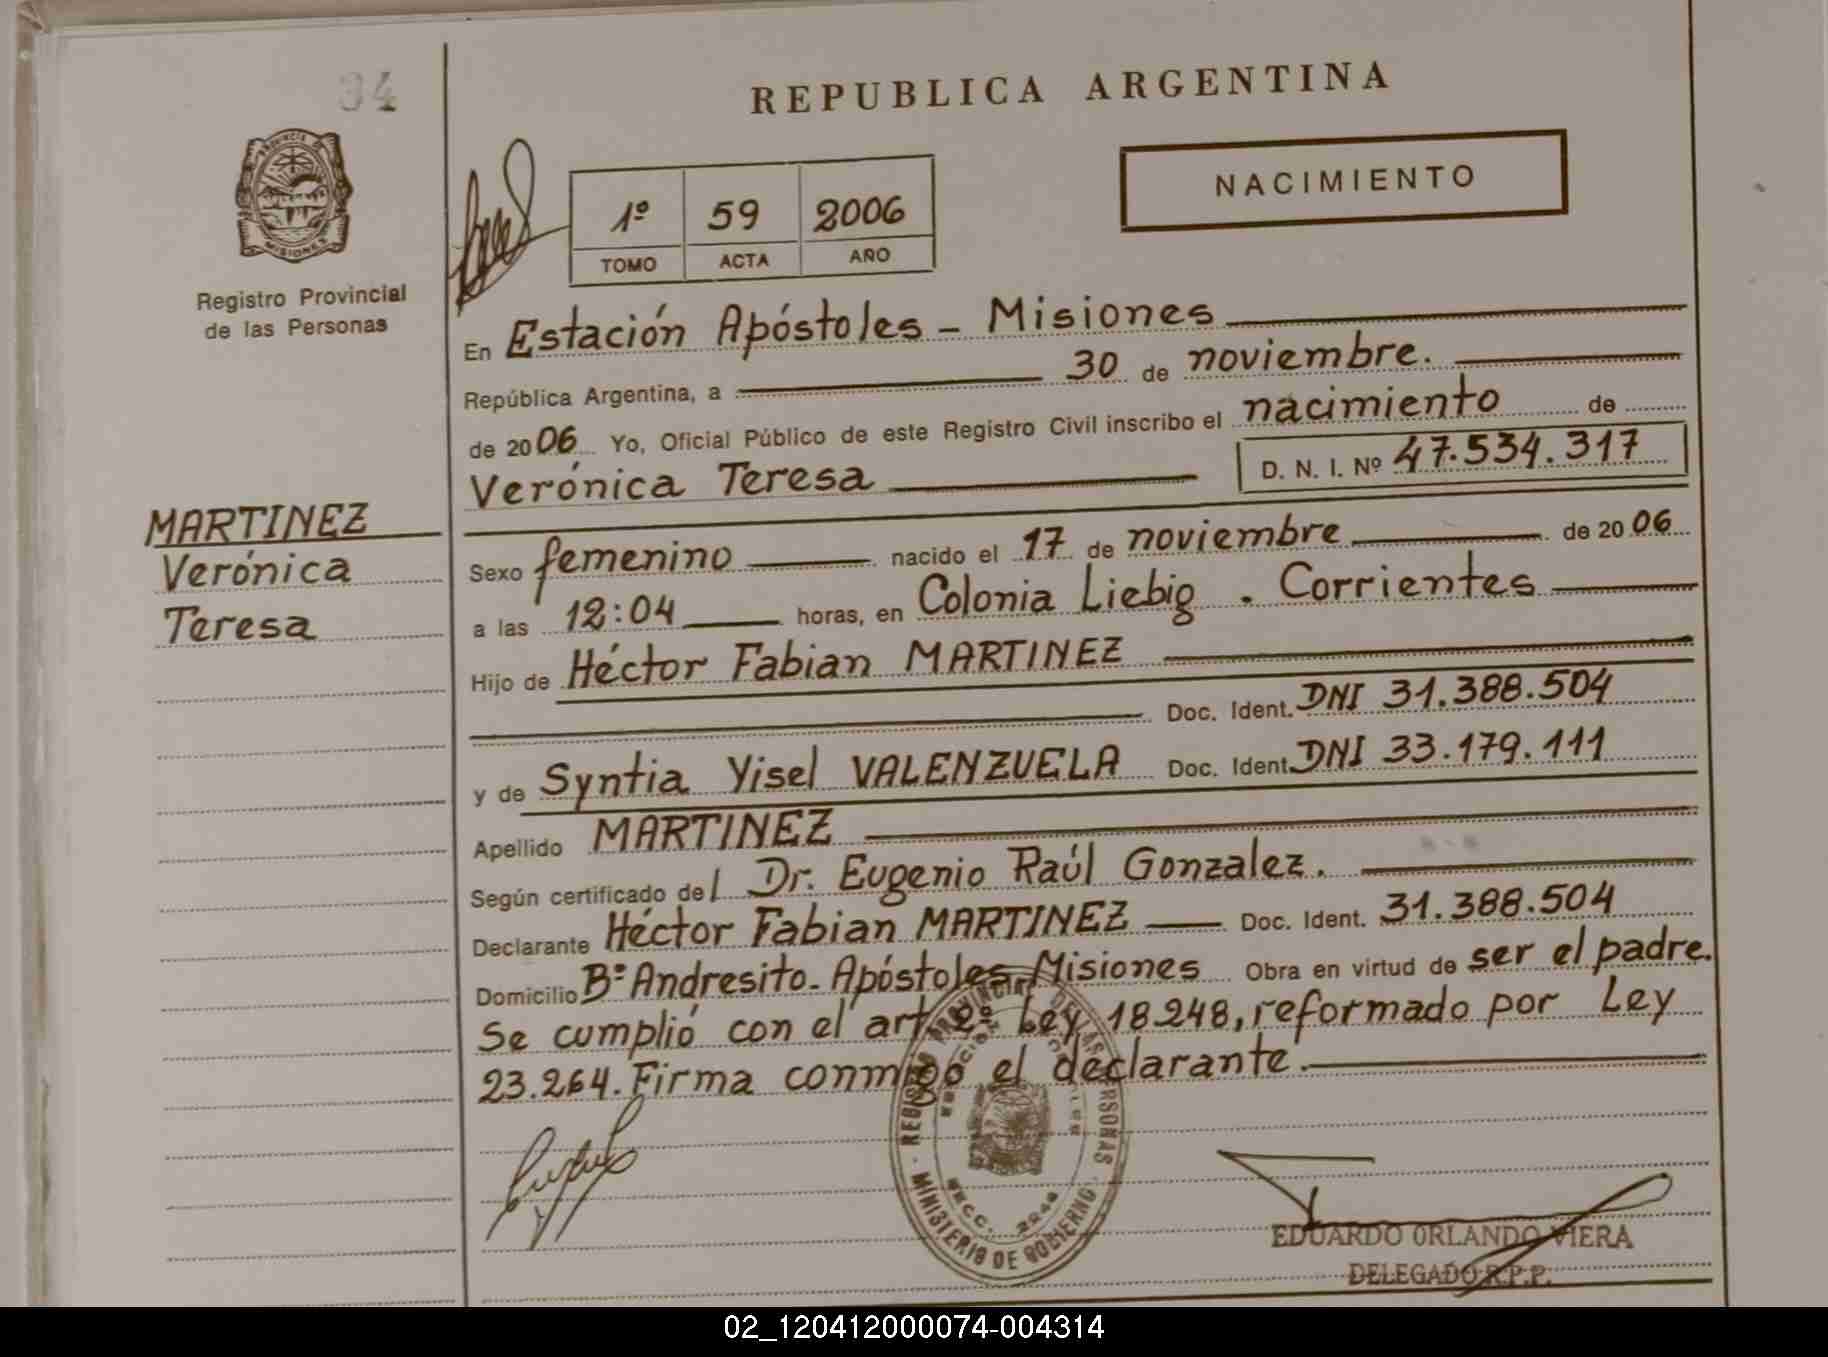 34
REPUBLICA ARGENTINA
PROVINCIA DE
MISIONES
Registro Provincial
de las Personas
1º 59 2006
TOMO ACTA AÑO
NACIMIENTO
En Estación Apóstoles - Misiones
República Argentina, a 30 de noviembre.
de 2006 Yo, Oficial Público de este Registro Civil inscribo el nacimiento de
Verónica Teresa D. N. I. Nº 47.534.317
MARTINEZ
Verónica
Teresa
Sexo femenino nacido el 17 de noviembre de 2006
a las 12:04 horas, en Colonia Liebig . Corrientes
Hijo de Héctor Fabian MARTINEZ
Doc. Ident. DNI 31.388.504
y de Syntia Yisel VALENZUELA Doc. Ident. DNI 33.179.111
Apellido MARTINEZ
Según certificado del Dr. Eugenio Raúl Gonzalez.
Declarante Héctor Fabian MARTINEZ Doc. Ident. 31.388.504
Domicilio Bº Andresito. Apóstoles, Misiones Obra en virtud de ser el padre.
Se cumplió con el art 2º Ley 18.248, reformado por Ley
23.264. Firma conmigo el declarante.
REGISTRO PROVINCIAL DE LAS PERSONAS
MINISTERIO DE GOBIERNO
EDUARDO ORLANDO VIERA
DELEGADO R.P.P.
02_120412000074-004314